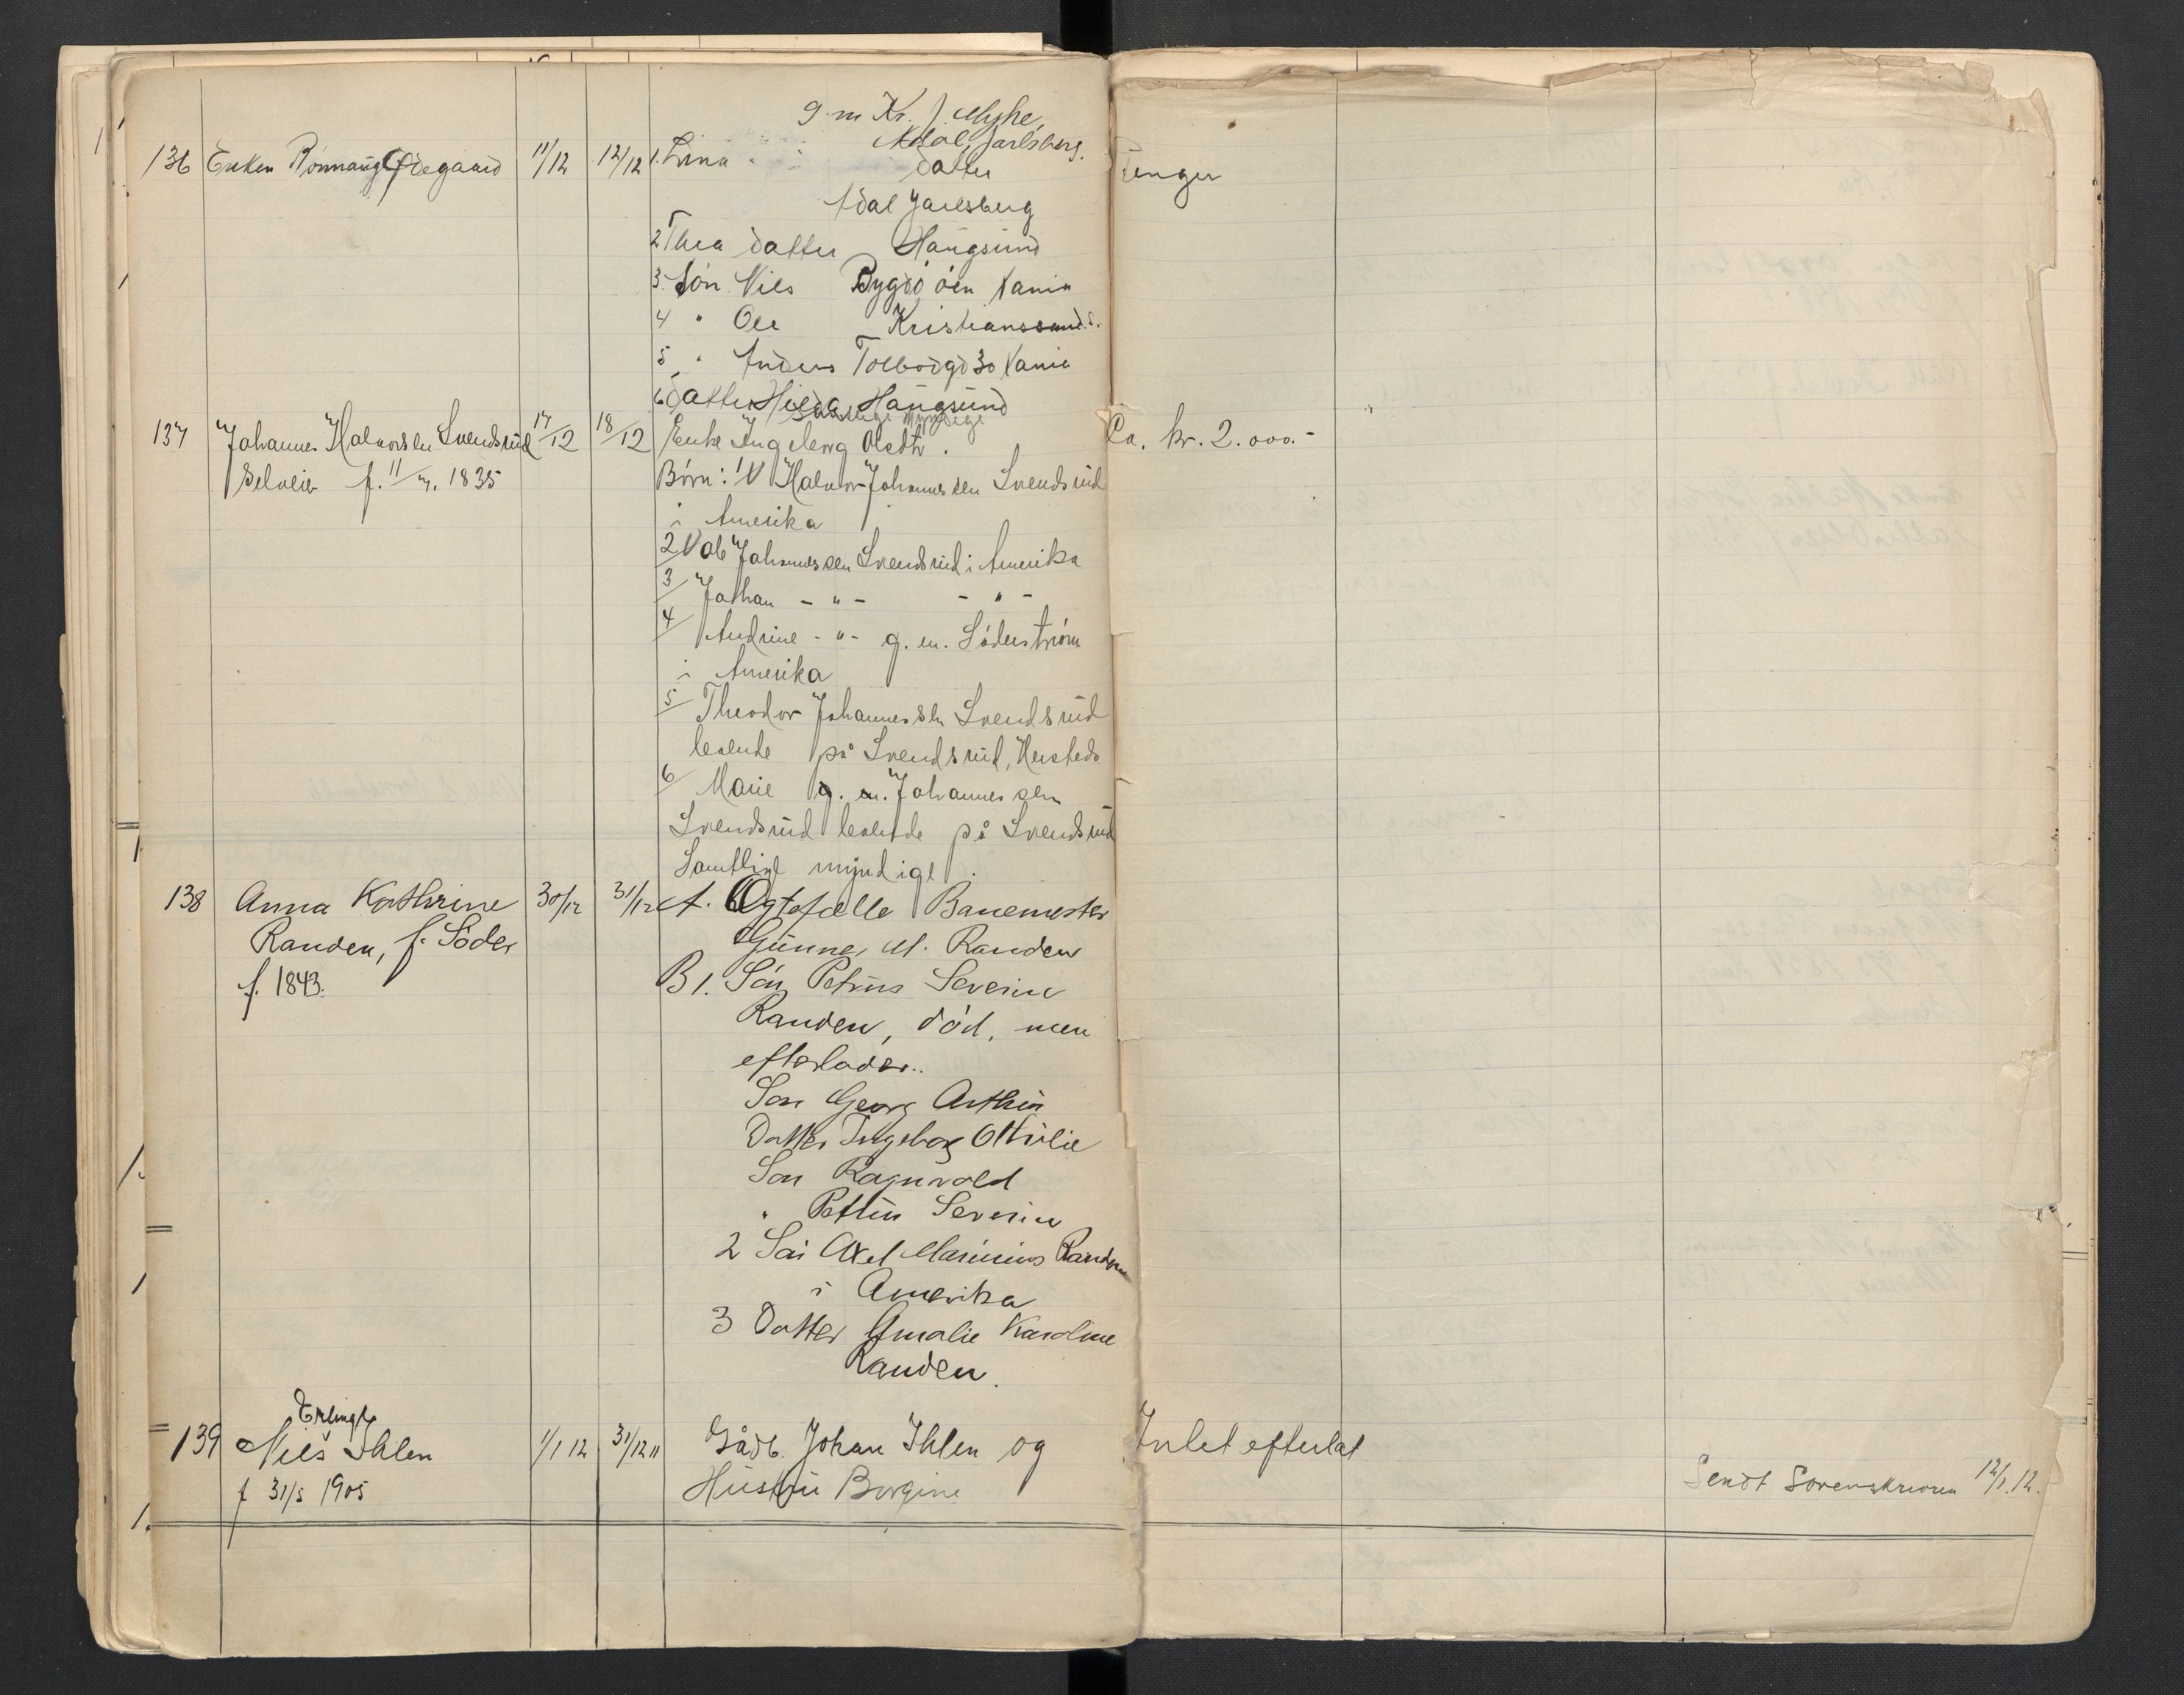 g. m Kr. J. Myhre,
Adal, Jarlsberg.
136 Enken Rönnaug Ødegaard 11/12 12/12 1. Lina datter Penger
Adal Jarlsberg
2 Thea datter Haugsund
3. Sön Nils Bygdö öen Kania
4 " Ole Kristianssand S.
5 " Anders Tolbodgd 30 Kania
6 datter Hilda Haugsund
Samtlige myndige
137 Johannes Halvorsen Svendsrud 17/12 18/12 Enke Ingeborg Olsdtr. Ca. kr. 2.000.-
Selveier f. 11/7. 1835
Börn: 1/ Halvor Johannessen Svendsrud
i Amerika
2/ Ole Johannessen Svendsrud i Amerika
3/ Johan - " - - " -
4/ Andrine - " - g. m. Söderström
i Amerika
5/ Theodor Johannessen Svendsrud
boende på Svendsrud,
6/ Marie g. m. Johannessen
Svendsrud boende på Svendsrud
Samtlige myndige.
138 Anna Kathrine 30/12 31/12 A. Ægtefælle Banemester
Randen, f. Söder Gunner M. Randen
f. 1843. B 1. Sön Petrus Severin
Randen, död, men
efterlader..
Sön Georg Arthur
Datter Ingeborg Ottilie
Sön Ragnvald
" Petter Severin
2 Sön Axel Marinius Randen
i Amerika
3 Datter Amalie Karoline
Randen.
Erling
139 Nils Ihlen 1/1 12 31/12 11 Gådb. Johan Ihlen og Intet efterlat
f 31/5 1905 Hustru Borgine Sendt Sorenskriveren 12/1. 12.